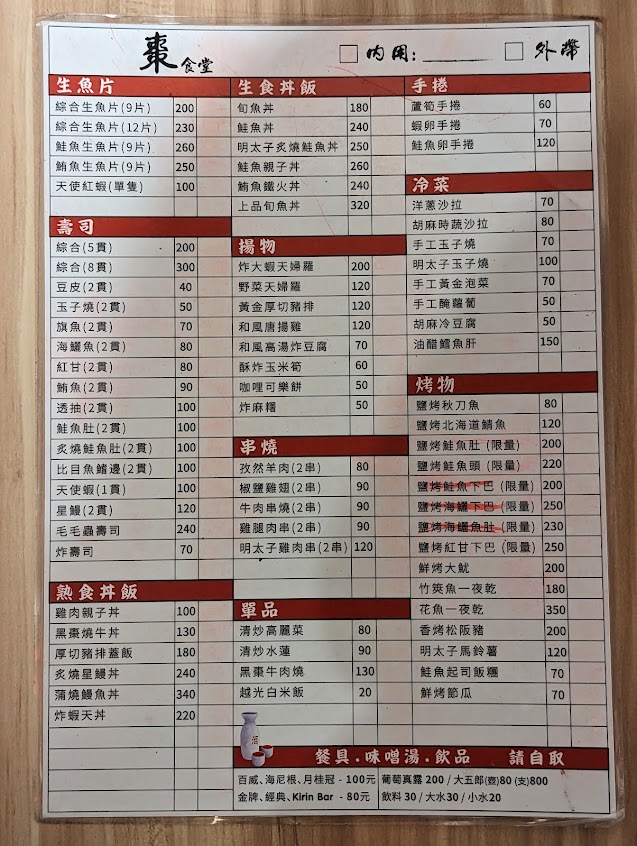 棗食堂 □內用:______ □外帶
生魚片
綜合生魚片(9片) 200
綜合生魚片(12片) 230
鮭魚生魚片(9片) 260
鮪魚生魚片(9片) 250
天使紅蝦(單隻) 100
壽司
綜合(5貫) 200
綜合(8貫) 300
豆皮(2貫) 40
玉子燒(2貫) 50
旗魚(2貫) 70
海鱺魚(2貫) 80
紅甘(2貫) 80
鮪魚(2貫) 90
透抽(2貫) 100
鮭魚肚(2貫) 100
炙燒鮭魚肚(2貫) 100
比目魚鰭邊(2貫) 100
天使蝦(1貫) 100
星鰻(2貫) 120
毛毛蟲壽司 240
炸壽司 70
熟食丼飯
雞肉親子丼 100
黑棗燒牛丼 130
厚切豬排蓋飯 180
炙燒星鰻丼 240
蒲燒鰻魚丼 340
炸蝦天丼 220
生食丼飯
旬魚丼 180
鮭魚丼 240
明太子炙燒鮭魚丼 250
鮭魚親子丼 260
鮪魚鐵火丼 240
上品旬魚丼 320
揚物
炸大蝦天婦羅 200
野菜天婦羅 120
黃金厚切豬排 120
和風唐揚雞 120
和風高湯炸豆腐 70
酥炸玉米筍 60
咖哩可樂餅 50
炸麻糬 50
串燒
孜然羊肉(2串) 80
椒鹽雞翅(2串) 90
牛肉串燒(2串) 90
雞腿肉串(2串) 90
明太子雞肉串(2串) 120
單品
清炒高麗菜 80
清炒水蓮 90
黑棗牛肉燒 130
越光白米飯 20
手捲
蘆筍手捲 60
蝦卵手捲 70
鮭魚卵手捲 120
冷菜
洋蔥沙拉 70
胡麻時蔬沙拉 80
手工玉子燒 70
明太子玉子燒 100
手工黃金泡菜 70
手工醃蘿蔔 50
胡麻冷豆腐 50
油醋鱈魚肝 150
烤物
鹽烤秋刀魚 80
鹽烤北海道鯖魚 120
鹽烤鮭魚肚 (限量) 200
鹽烤鮭魚頭 (限量) 220
鹽烤鮭魚下巴 (限量) 200
鹽烤海鱺下巴 (限量) 250
鹽烤海鱺魚肚 (限量) 230
鹽烤紅甘下巴 (限量) 250
鮮烤大魷 200
竹筴魚一夜乾 180
花魚一夜乾 350
香烤松阪豬 200
明太子馬鈴薯 120
鮭魚起司飯糰 70
鮮烤節瓜 70
酒
餐具.味噌湯.飲品 請自取
百威、海尼根、月桂冠 - 100元
金牌、經典、Kirin Bar - 80元
葡萄真露 200 / 大五郎(壺)80 (支)800
飲料 30 / 大水30 / 小水20